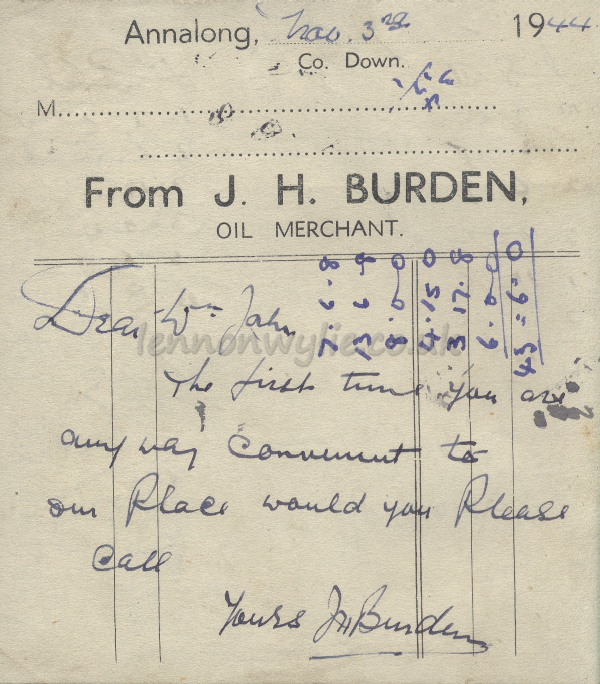 Annalong, Nov. 3rd 1944
Co. Down.
M
From J. H. BURDEN,
OIL MERCHANT.
7.6.8
13 6 8
8.0.0
4.15 0
3 17.8
6.0.0
43 "6" 0
Dear Wm John
lennonwylie.co.uk
The first time you are
any way convenient to
our Place would you Please
Call
Yours JH Burden